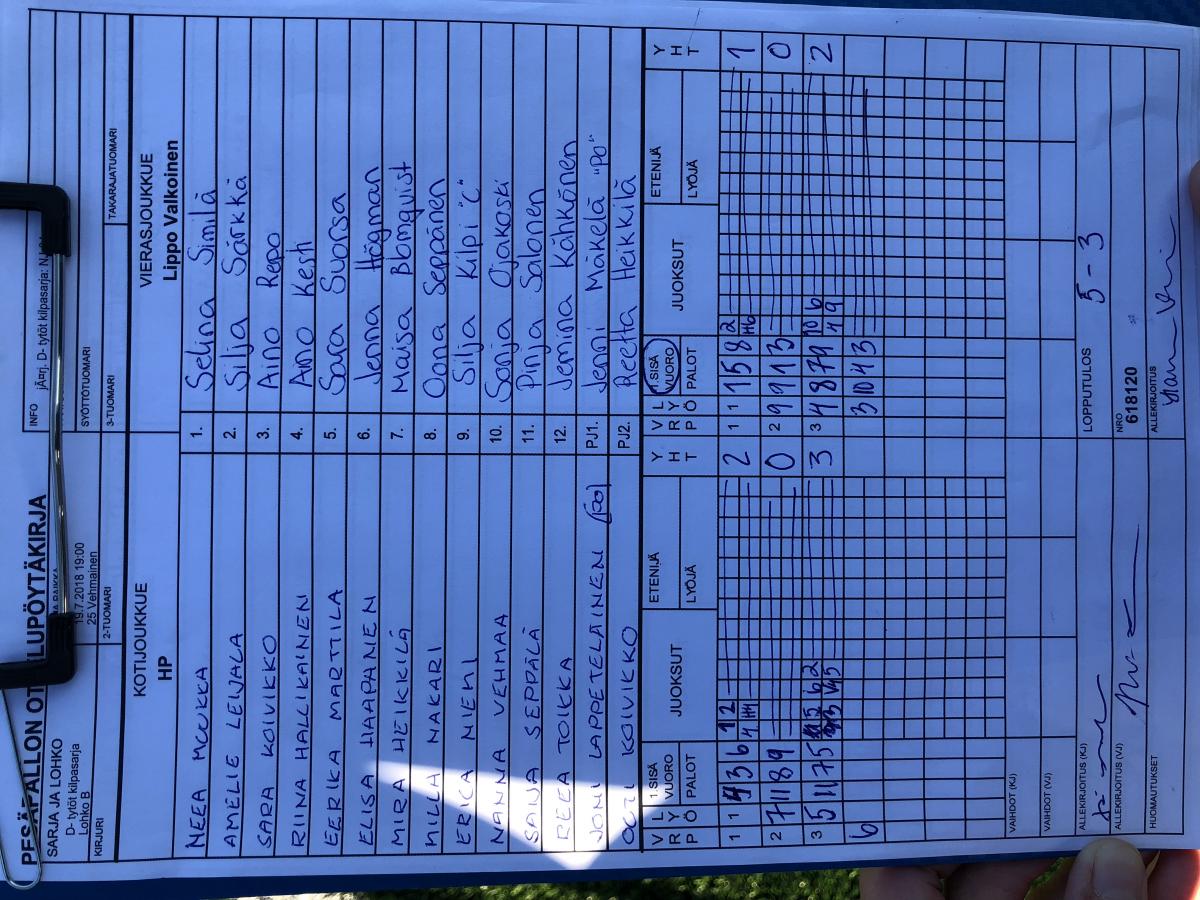 PESÄPALLON OT LUPÖYTÄKIRJA
SARJA JA LOHKO
D- tytöt kilpasarja
Lohko B
19.7.2018 19:00
25 Vehmainen
INFO jÄ¤rj. D- tytöt kilpasarja:
KIRJURI
2-TUOMARI
SYÖTTÖTUOMARI
3-TUOMARI
TAKARAJATUOMARI
KOTIJOUKKUE
HP
VIERASJOUKKUE
Lippo Valkoinen
NEEA MCUKKA 1. Selina Similä
AMELIE LEIJALA 2. Silja Särkkä
SARA KOIVIKKO 3. Aino Repo
RIINA HALLIKAINEN 4. Aino Kesti
EERIKA MARTTILA 5. Sara Suorsa
ELISA HAAPAINEN 6. Jenna Högman
MIRA HEIKKILÄ 7. Maisa Blomqvist
MILLA NAKARI 8. Oona Seppänen
ERICA MIEHI 9. Silja Kilpi "C"
NANNA VEHMAA 10. Sonja Ojakoski
SAINA SEPPÄLÄ 11. Pinja Salonen
REEA TOIKKA 12. Jemina Kähkönen
JONI LAPPETELÄINEN PJ1. Jenni Mäkelä "Po"
OUTI KOIVIKKO PJ2. Reetta Heikkilä
VRP LYÖ 1.SISÄ VUORO PALOT JUOKSUT ETENIJÄ LYÖJÄ YHT VRP LYÖ 1.SISÄ VUORO PALOT JUOKSUT ETENIJÄ LYÖJÄ YHT
1 1 4 3 6 1 2 2 1 1 1 5 8 2 1
2 7 11 8 9 0 2 9 9 1 3 0
3 5 11 7 5 3 3 4 8 7 9 10 6 4 9 2
6 3 10 4 3
VAIHDOT (KJ)
VAIHDOT (VJ)
ALLEKIRJOITUS (KJ) LOPPUTULOS 5 - 3
ALLEKIRJOITUS (VJ) NRO 618120
HUOMAUTUKSET ALLEKIRJOITUS